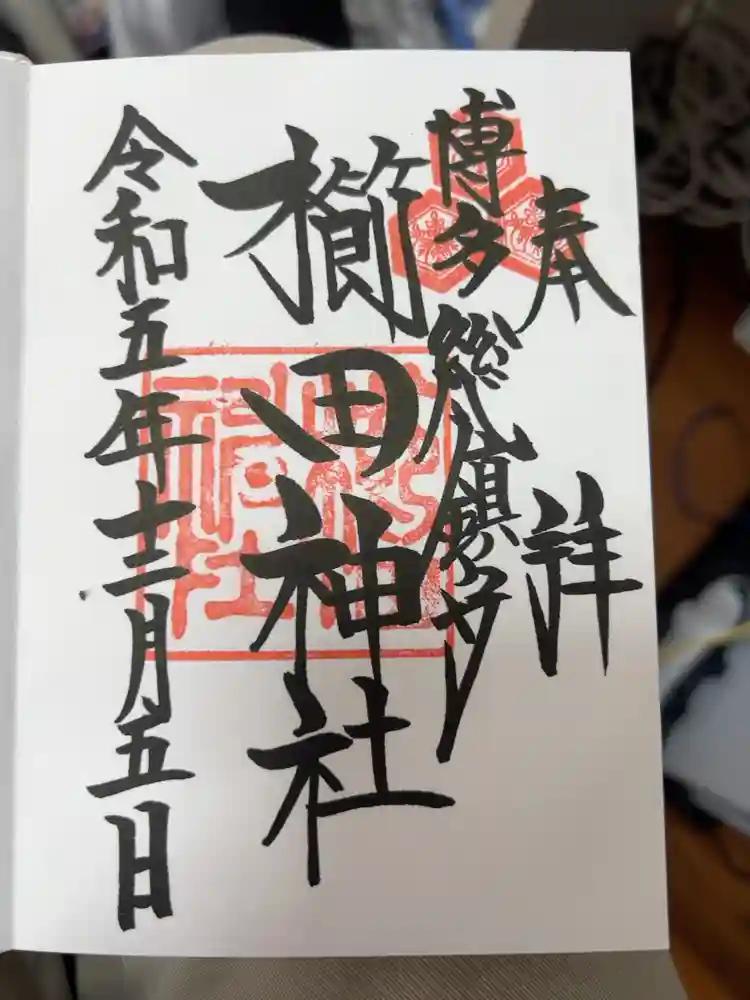 奉
拝
博多総鎮守
櫛田神社
令和五年十二月五日